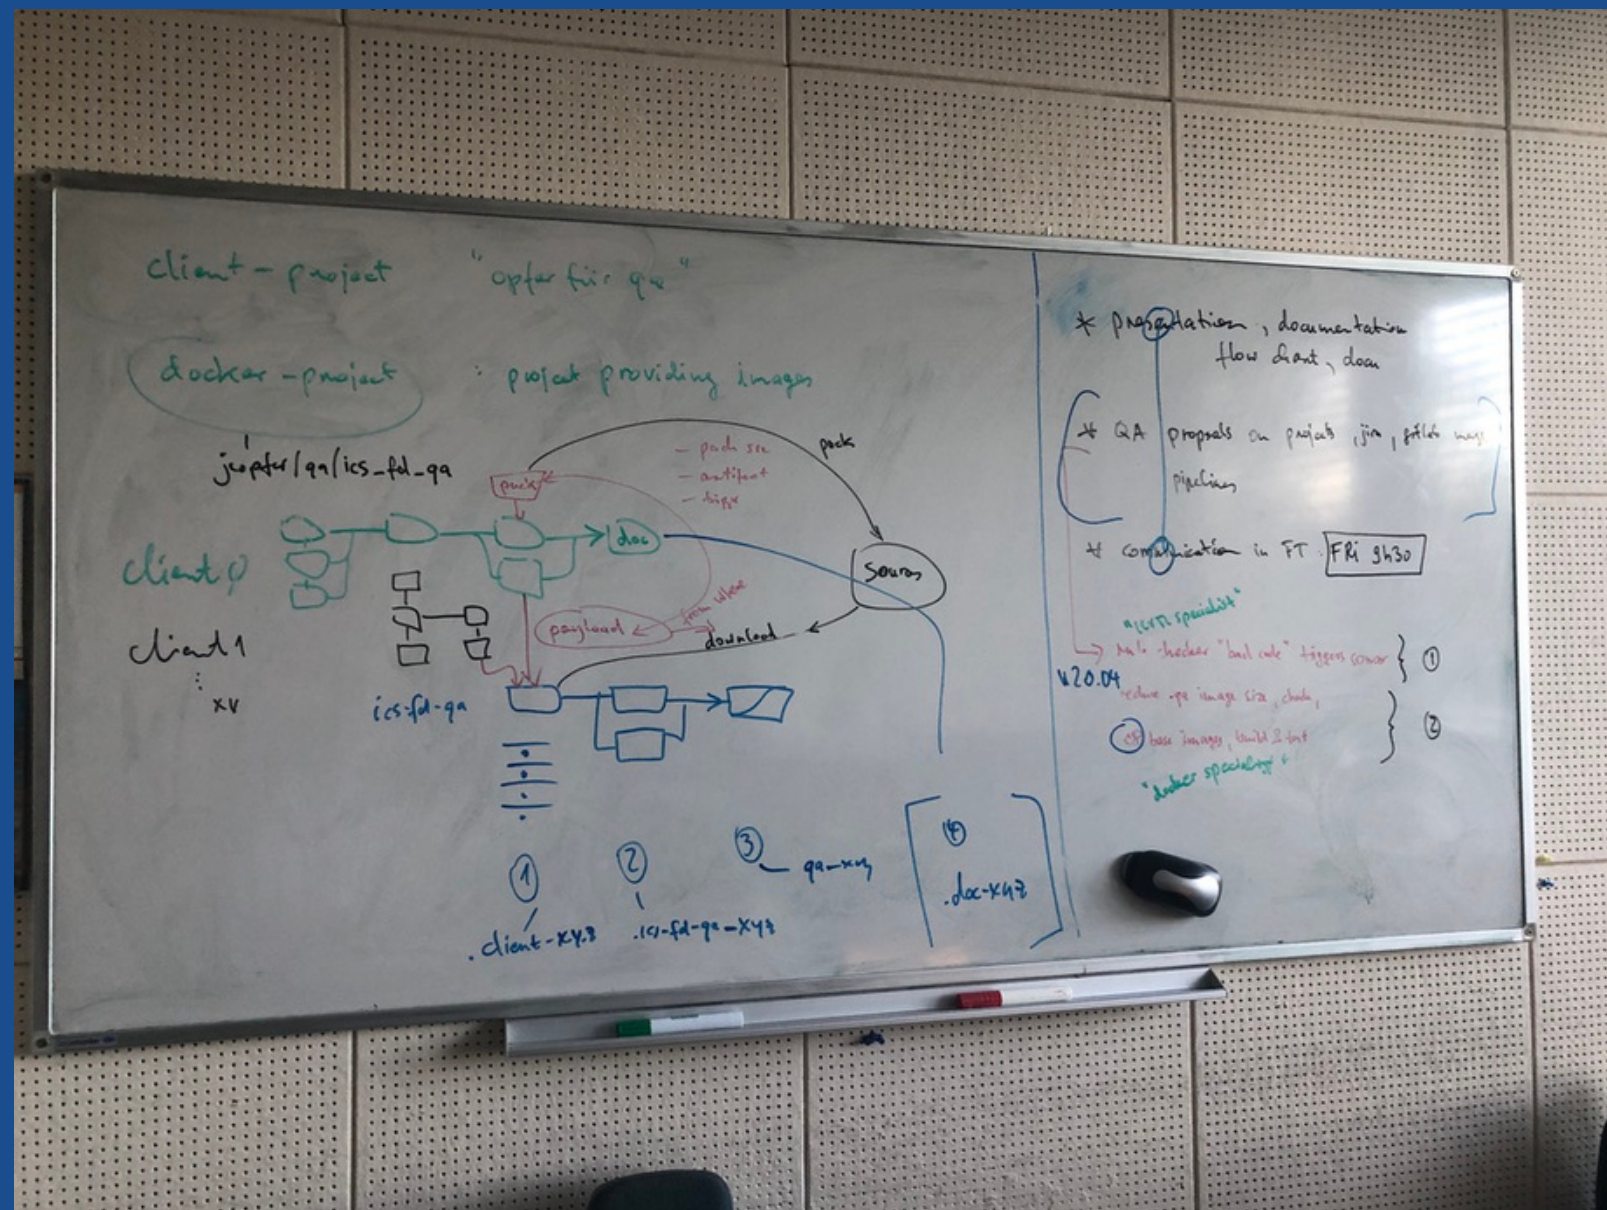 client-project "opfer für qa"
docker-project : project providing images
/qa/ics_fd_qa
pack
- pack src
- artifact
pack
client φ
doc
Sources
client 1
payload
from where
download
ics-fd-qa
1
2
3
4
.client-xyz
.ics-fd-qa-xyz
qa-xyz
.doc-xyz
* presentation, documentation
flow chart, docu
* QA proposals on projects, jira, gitlab
pipelines
* communication in FT FRi 9h30
specialist"
checker "bad code" triggers 1
v20.04
qa image size, check,
base images, build & test 2
"docker specialist"